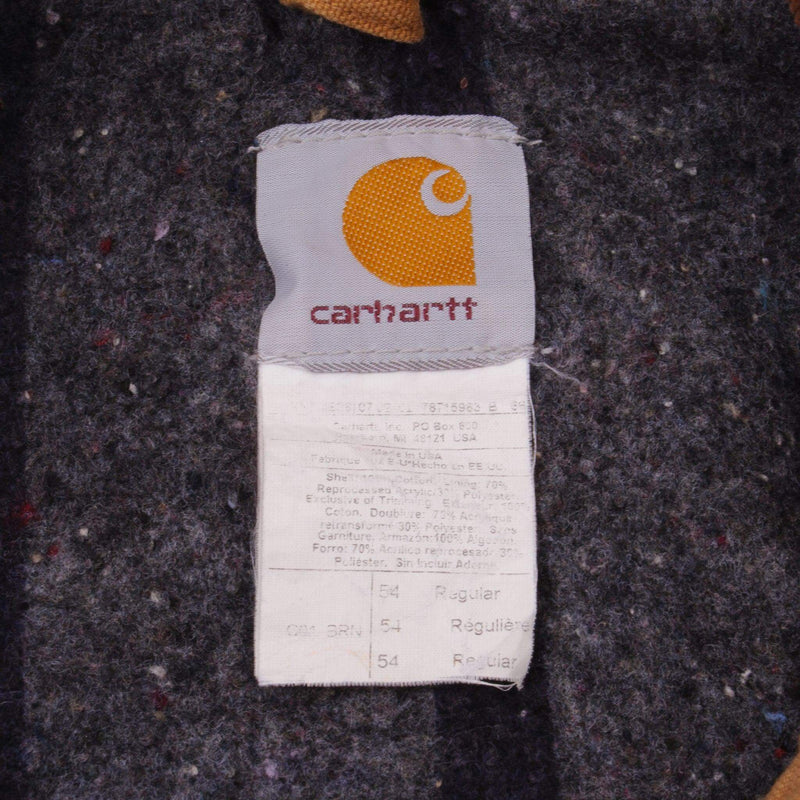 carhartt
07 76715963 B
Carhartt, Inc. PO Box 600
MI 48121 USA
Made in USA
Fabriqué Hecho en EE UU
Cotton. Lining: 70%
Reprocessed Acrylic/30% Polyester
Exclusive of Trimming. 100%
Coton. Doublure: 70% Acrylique
retransformé 30% Polyester. Sans
Garniture. Armazón:100% Algodón
Forro: 70% Acrílico reprocesado/ 30%
Poliéster. Sin Incluir Adorno
54 Regular
BRN 54 Régulière
54 Regular